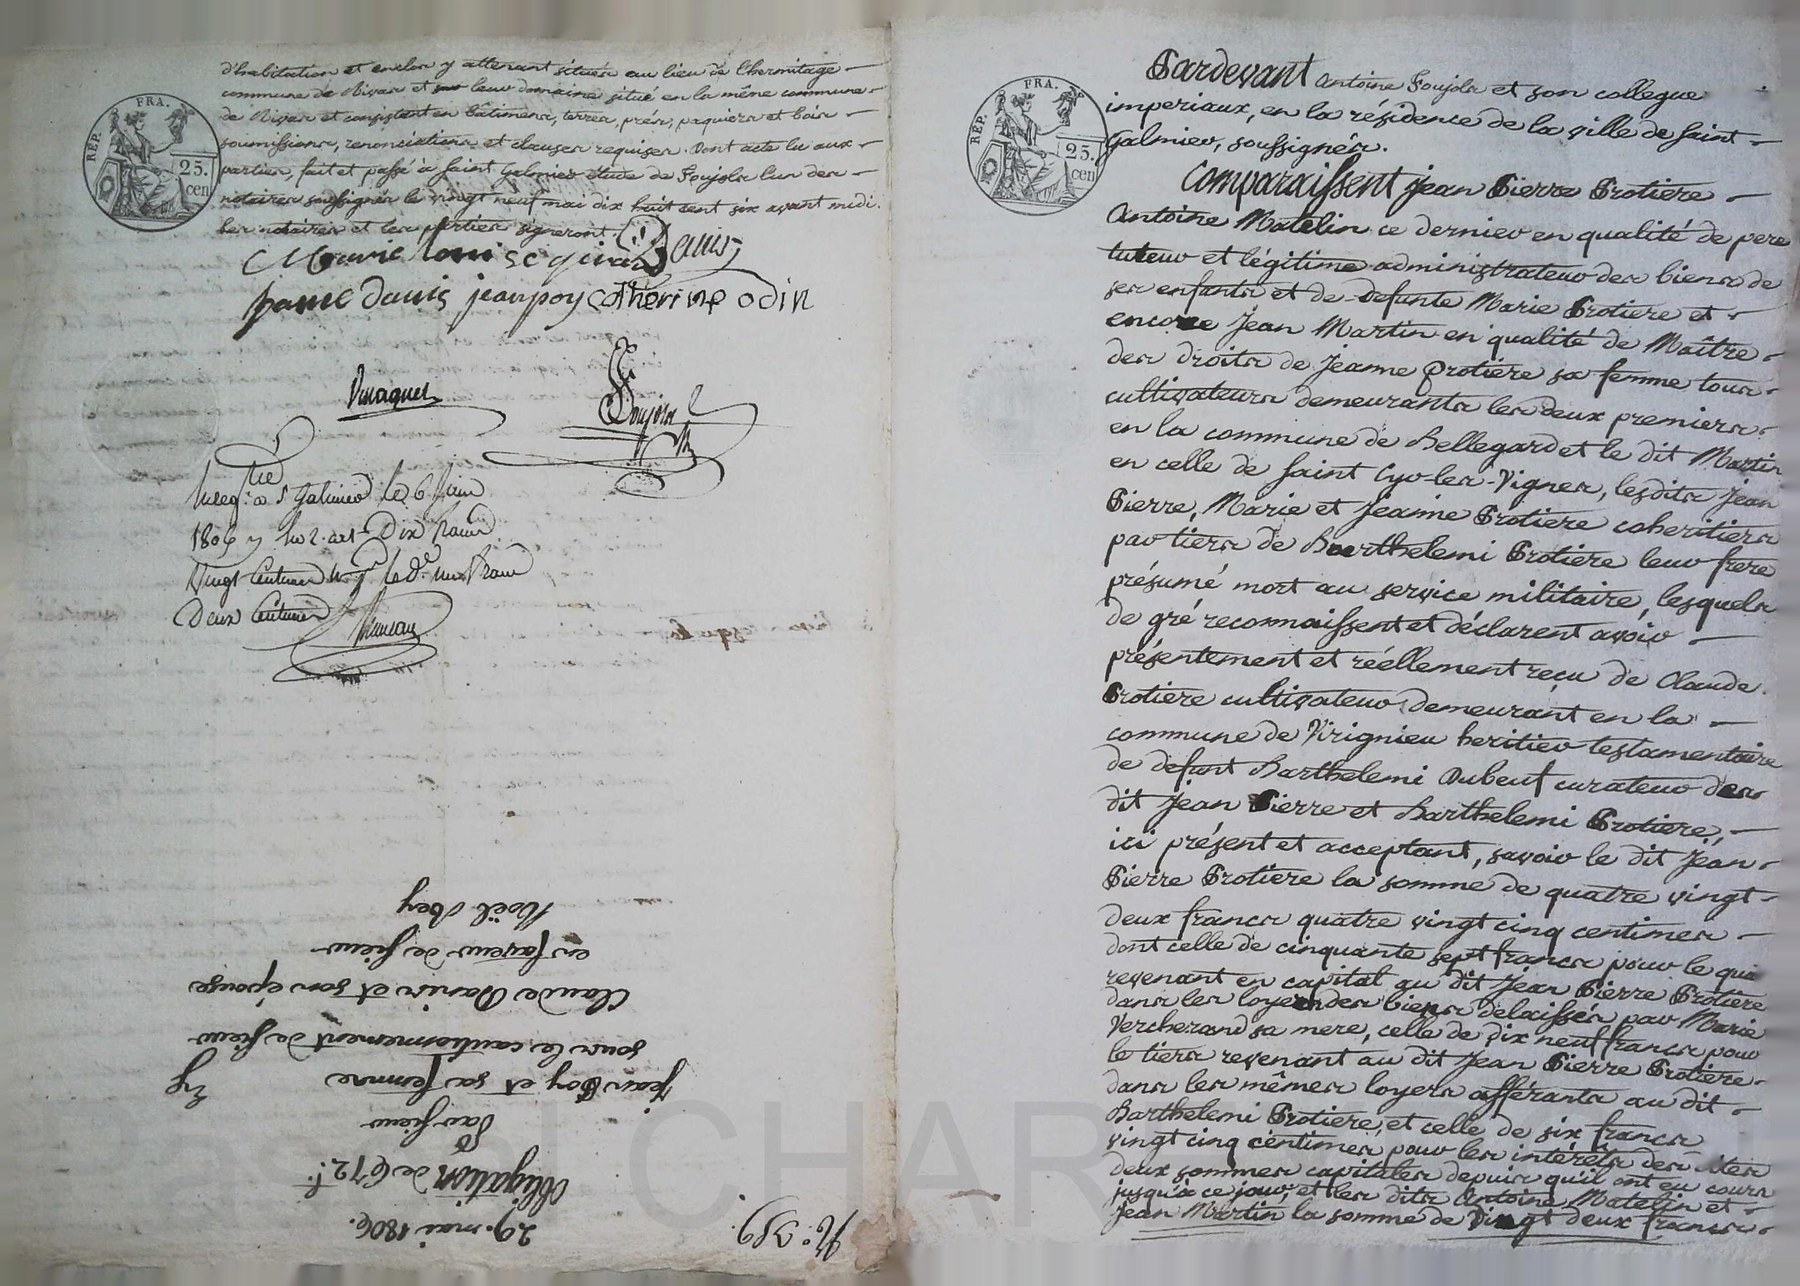 d'habitation et enclos y attenant situés au lieu de l'hermitage
commune de Rivas et leur domaine situé en la même commune
de Rivas et consistant en bâtimens, terres, prés, paquiers et bois
soumissions, renonciations et clauses requises. Dont acte lu aux
parties, fait et passé à Saint Galmier étude de Soujols l'un des
notaires soussignés le vingt neuf mai dix huit cent six avant midi.
les notaires et les parties signeront.
REP. FRA.
25.
cen
Danis
pane danis jean poy catherine odin
Soujols
Enreg. à St Galmier le 6 Juin
1806 Dix francs
Vingt Centimes un franc
Deux Centimes
N.° 389.
29. mai 1806.
Obligation de 672.f
Par sieur
Jean Poy et sa femme
sous le cautionnement de sieur
Claude Danis et son épouse
en faveur de sieur
Noël Rey
REP. FRA.
25.
cen
Pardevant Antoine Soujols et son collegue
imperiaux, en la résidence de la ville de Saint
Galmier, soussignés.
Comparaissent Jean Pierre Protiere
Antoine Matelin ce dernier en qualité de pere
tuteur et légitime administrateur des biens de
ses enfants et de defunte Marie Protiere et
encore Jean Martin en qualité de Maître
des droits de Jeanne Protiere sa femme tous
cultivateurs demeurants les deux premiers
en la commune de Bellegard et le dit Martin
en celle de Saint Cyr-les-Vignes, lesdits Jean
Pierre, Marie et Jeanne Protiere coheritiers
par tiers de Barthelemi Protiere leur frere
présumé mort au service militaire, lesquels
de gré reconnaissent et déclarent avoir
présentement et réellement reçu de Claude
Protiere cultivateur demeurant en la
commune de Virignieu heritier testamentaire
de defunt Barthelemi Dubeuf curateur des
dit Jean Pierre et Barthelemi Protiere,
ici présent et acceptant, savoir le dit Jean
Pierre Protiere la somme de quatre vingt
deux francs quatre vingt cinq centimes
dont celle de cinquante sept francs pour le quis
revenant en capital au dit Jean Pierre Protiere
dans les loyers des biens delaissés par Marie
Vercherand sa mere, celle de dix neuf francs pour
le tiers revenant au dit Jean Pierre Protiere
dans les mêmes loyers afférants au dit
Barthelemi Protiere, et celle de six francs
vingt cinq centimes pour les intérêts des dites
deux sommes capitales depuis qu'il ont eu cours
jusqu'à ce jour, et les dits Antoine Matelin et
Jean Martin la somme de vingt deux francs